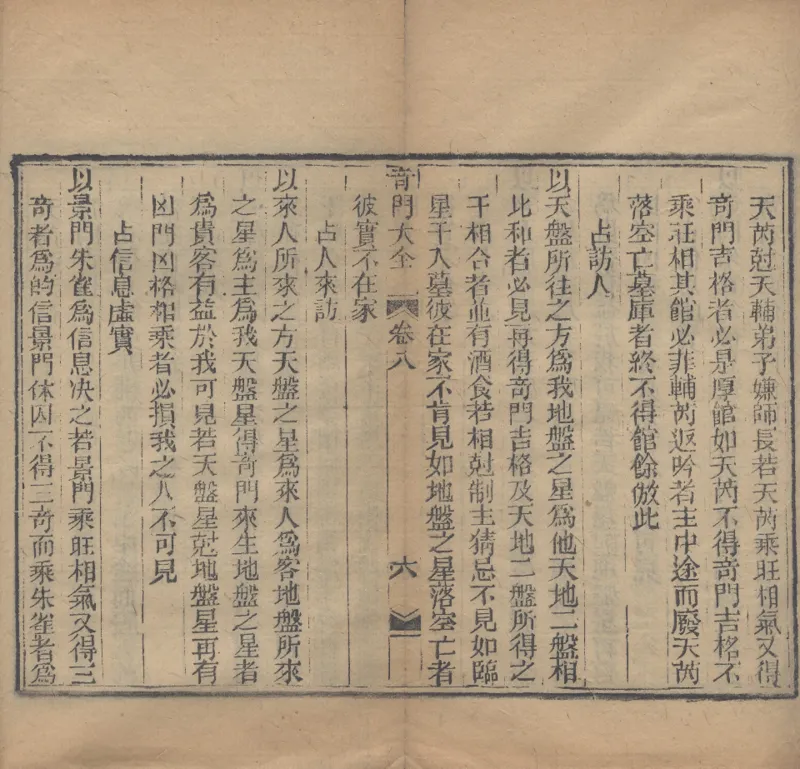 天芮尅天輔弟子嫌師長若天芮乘旺相氣又得
奇門吉格者必是厚館如天芮不得奇門吉格不
乘旺相其館必菲輔芮返吟者主中途而廢天芮
落空亡墓庫者終不得館餘倣此
占訪人
以天盤所往之方為我地盤之星為他天地二盤相
比和者必見再得奇門吉格及天地二盤所得之
干相合者並有酒食若相尅制主猜忌不見如臨
星干入墓彼在家不肯見如地盤之星落空亡者
奇門大全 卷八 六
彼實不在家
占人來訪
以來人所來之方天盤之星為來人為客地盤所來
之星為主為我天盤星得奇門來生地盤之星者
為貴客有益於我可見若天盤星尅地盤星再有
凶門凶格相乘者必損我之人不可見
占信息虛實
以景門朱雀為信息决之若景門乘旺相氣又得三
奇者為的信景門休囚不得三奇而乘朱雀者為